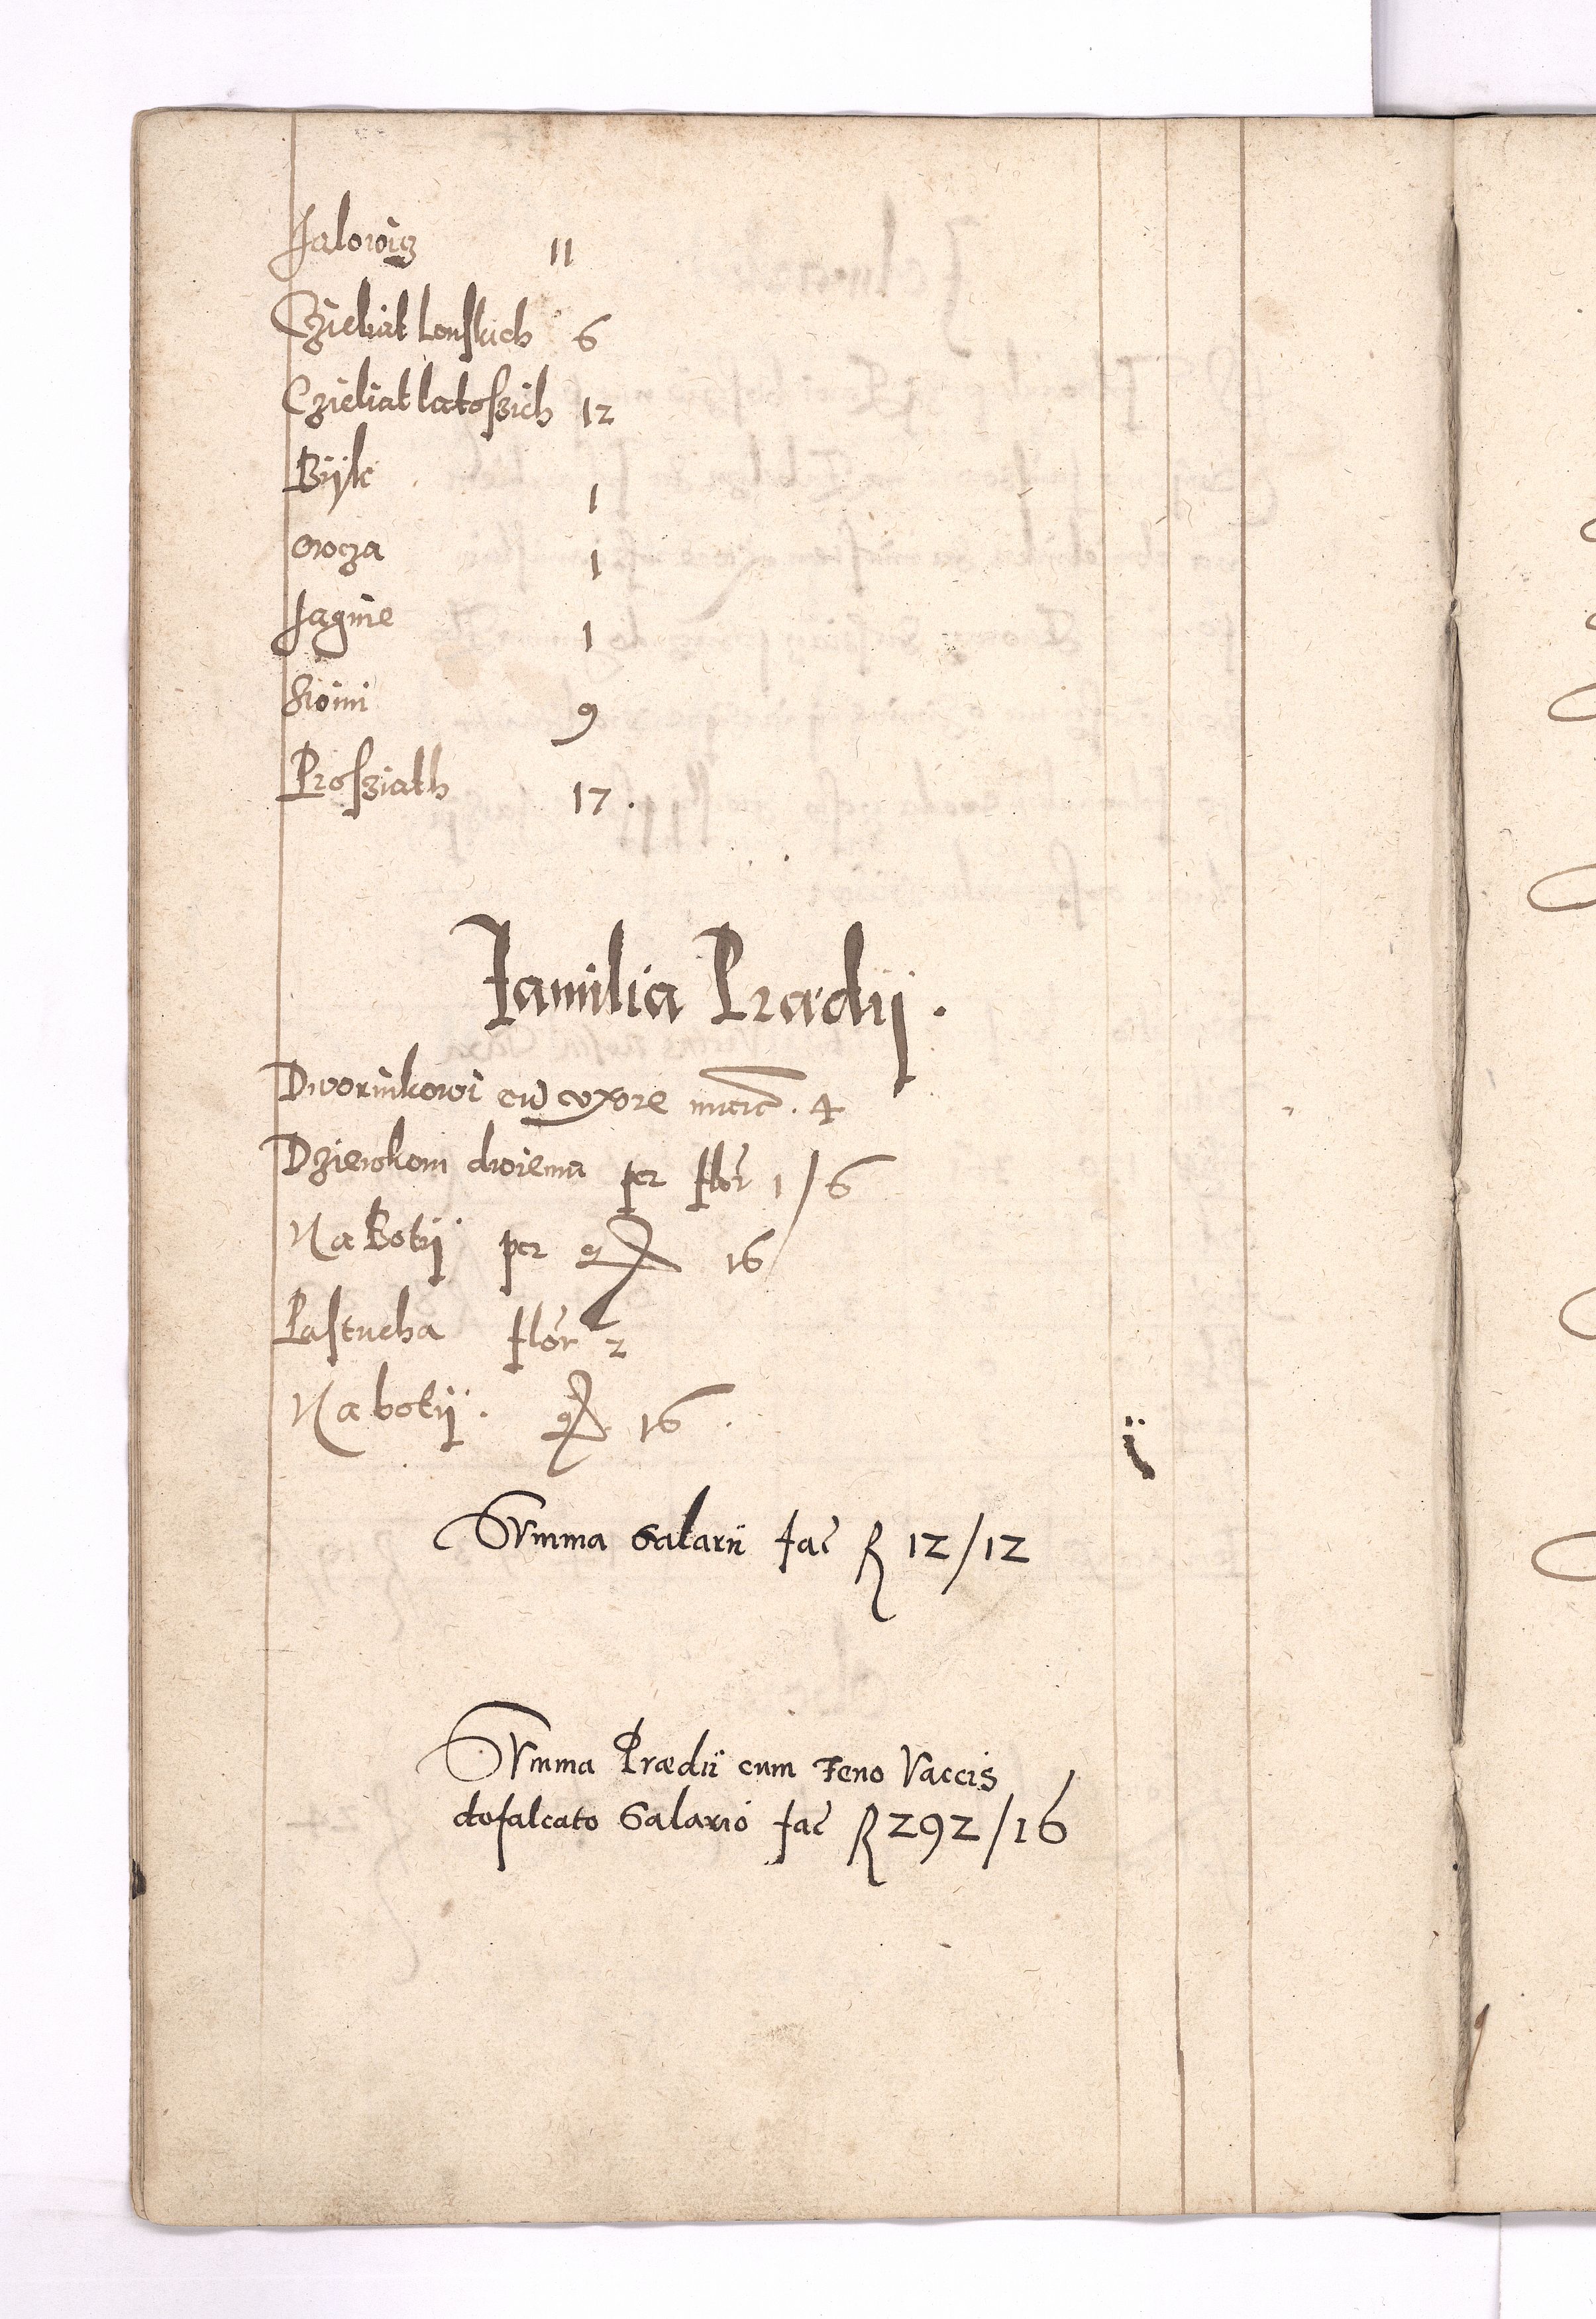 Jalowicz 11
Czieliat Lonskich 6
Czieliat latoszich 12
Bÿk 1
owcza 1
Jagnie 1
Swini 9
Prosziath 17.
Familia Prædij.
Dwornikowi cum uxore marc. 4
Dziewkom dwiema per flor 1/6
Na Botÿ per 16
Pastucha flor 2
Na botÿ. 16.
Summa Salarii fac R 12/12
Summa Prædii cum Feno Vaccis
defalcato Salario fac R 292/16